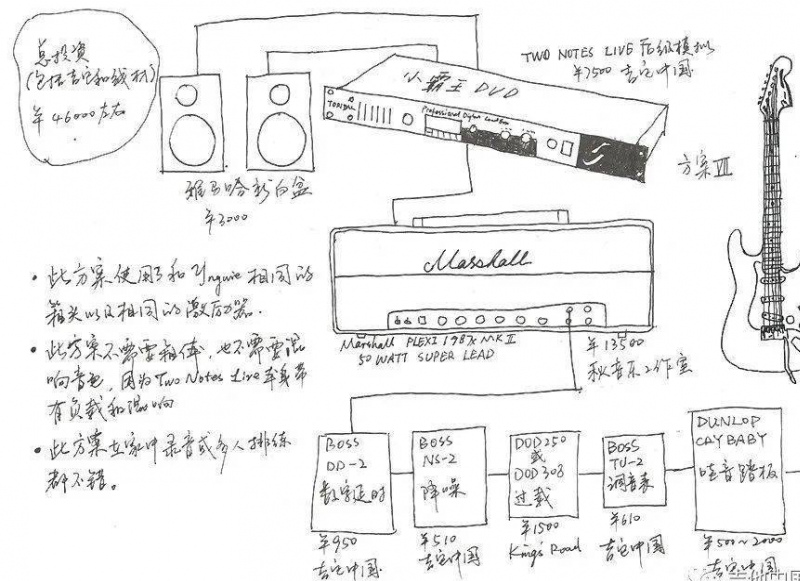 总投资
(包括吉它和线材)
¥46000左右
TWO NOTES LIVE 后级模拟
¥7500 吉它中国
小霸王DVD
TORPEDO
Professional Digital Load Box
方案Ⅶ
雅马哈新白盆
¥3000
Masshall
Marshall PLEXI 1987X MKⅡ
50 WATT SUPER LEAD
¥13500
秋音乐工作室
• 此方案使用了和Yngwie相同的
箱头以及相同的激励器.
• 此方案不需要箱体,也不需要混
响音色,因为Two Notes Live本身带
有负载和混响
• 此方案在家中录音或多人排练
都不错。
BOSS
DD-2
数字延时
¥950
吉它中国
BOSS
NS-2
降噪
¥510
吉它中国
DOD250
或
DOD308
过载
¥1500
King's Road
BOSS
TU-2
调音表
¥610
吉它中国
DUNLOP
CAYBABY
哇音踏板
¥500~2000
吉它中国